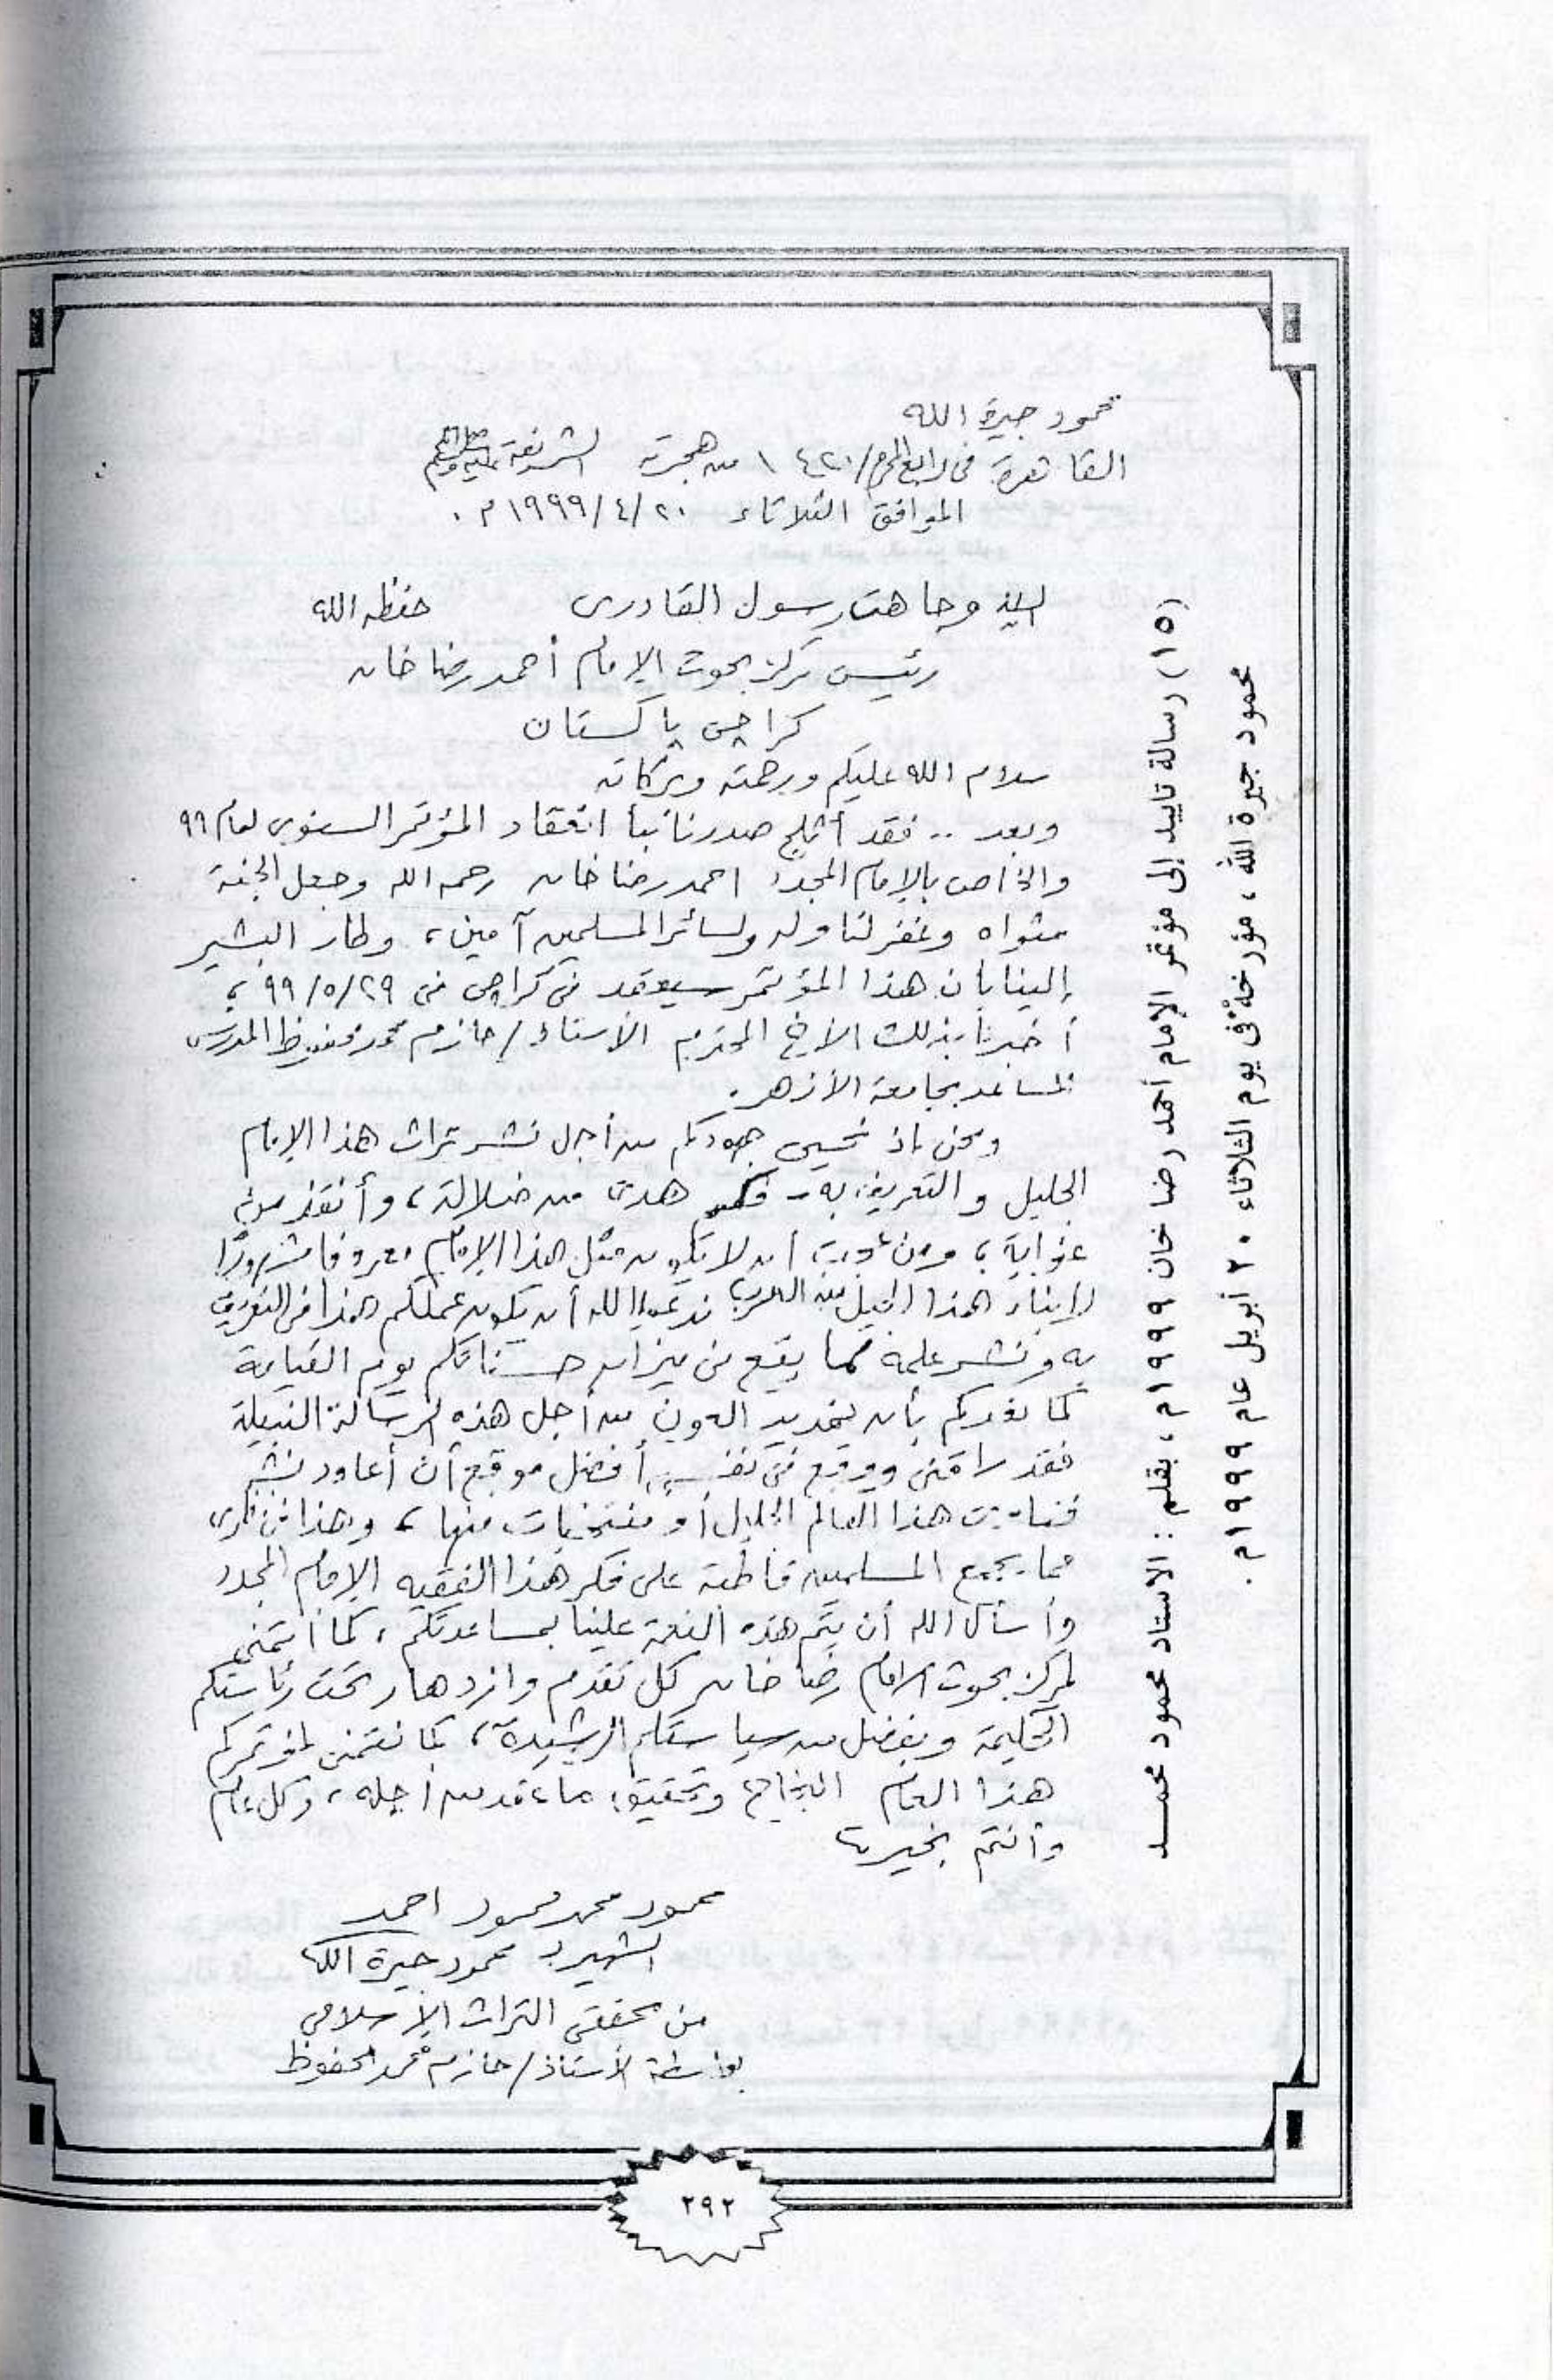 محمود جيرة الله
القاهرة فى رابع المحرم/١٤٢٠ من هجرته الشريفة صلى الله عليه وسلم
الموافق الثلاثاء ١٩٩٩/٤/٢٠م.
السيد وجاهت رسول القادرى حفظه الله
رئيس مركز بحوث الإمام أحمد رضا خان
كراچى پاكستان
سلام الله عليكم ورحمته وبركاته
وبعد .. فقد أثلج صدرنا نبأ انعقاد المؤتمر السنوى لعام ٩٩
والخاص بالإمام المجدد احمد رضا خان رحمه الله وجعل الجنة
مثواه وغفر لنا وله ولسائر المسلمين آمين، وطار البشير
إلينا بأن هذا المؤتمر سيعقد فى كراچى فى ٩٩/٥/٢٩،
أخبرنا بذلك الأخ المحترم الأستاذ/حازم محمد محفوظ المدرس
المساعد بجامعة الأزهر.
ونحن إذ نحيى جهودكم من أجل نشر تراث هذا الإمام
الجليل والتعريف به - فكم هدى من ضلالة، وأنقذ من
غواية، ومن أن لا يكون مثل هذا الإمام معروفا مشهورًا
لأبناء هذا الجيل من العرب ندعو الله أن يكون عملكم هذا فى التعريف
به ونشر علمه مما يقع فى ميزان حسناتكم يوم القيامة
كما نعدكم بأن نمد يد العون من أجل هذه الرسالة النبيلة
فقد راقنى ووقع فى نفسى أفضل موقع أن أعاود نشر
فتاوى هذا العالم الجليل أو منتخبات منها، وهذا فى
مما يجمع المسلمين قاطبة على فكر هذا الفقيه الإمام المجدد
وأسأل الله أن يتم هذه النعمة علينا بمساعدتكم، كما أتمنى
لمركز بحوث الإمام رضا خان كل تقدم وازدهار تحت رئاستكم
الحكيمة وبفضل من سياستكم الرشيدة، كما نتمنى لمؤتمركم
هذا العام النجاح وتحقيق ما عقد من أجله، وكل عام
وأنتم بخير،
محمود محمد محمود احمد
الشهير بـ محمود جيرة الله
من محققى التراث الإسلامى
بواسطة الأستاذ/حازم محمد محفوظ
(١٥) رسالة تاييد إلى مؤتمر الإمام أحمد رضا خان ١٩٩٩م، بقلم: الاستاذ محمود محمد
محمود جيرة الله، مؤرخة فى يوم الثلاثاء ٢٠ أبريل عام ١٩٩٩م.
٢٩٢